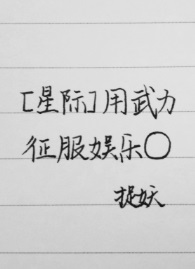 [星际]用武力
征服娱乐〇
捉妖